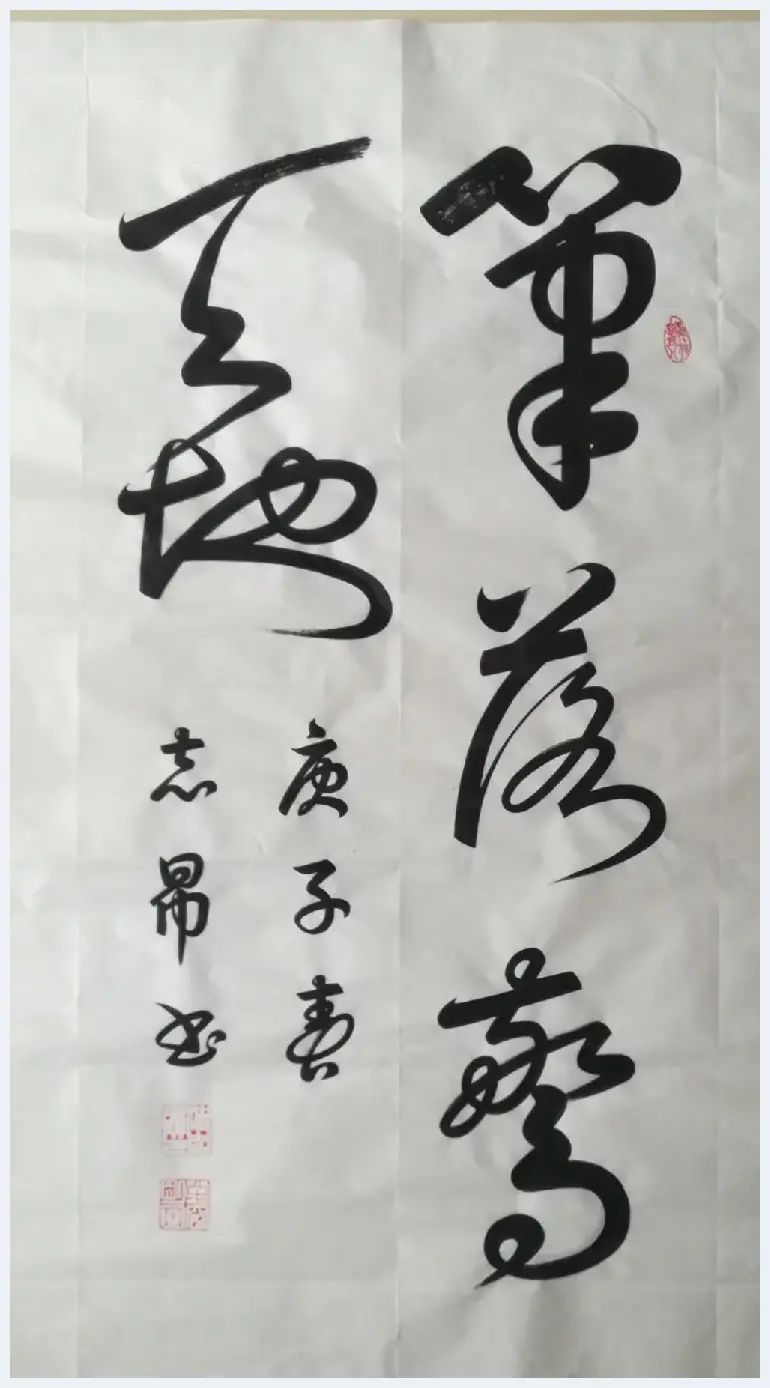 筆落驚
天地
庚子春
志昂书